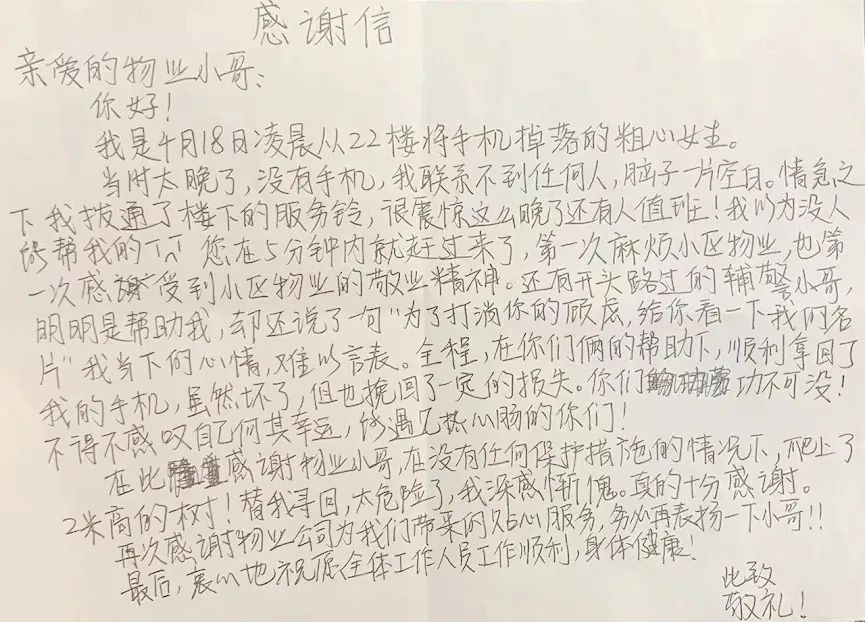 感谢信
亲爱的物业小哥:
你好!
我是4月18日凌晨从22楼将手机掉落的粗心女生。
当时太晚了,没有手机,我联系不到任何人,脑子一片空白。情急之
下我拨通了楼下的服务铃,很震惊这么晚了还有人值班!我以为没人
能帮我的TT 您在5分钟内就赶过来了,第一次麻烦小区物业,也第
一次感受到小区物业的敬业精神。还有开头路过的辅警小哥,
明明是帮助我,却还说了一句"为了打消你的顾虑,给你看一下我的名
片"我当下的心情,难以言表。全程,在你们俩的帮助下,顺利拿回了
我的手机,虽然坏了,但也挽回了一定的损失。你们功不可没!
不得不感叹自己何其幸运,能遇见热心肠的你们!
在此感谢物业小哥,在没有任何保护措施的情况下,爬上了
2米高的树!替我寻回,太危险了,我深感惭愧。真的十分感谢。
再次感谢物业公司为我们带来的贴心服务,务必再表扬一下小哥!!
最后,衷心地祝愿全体工作人员工作顺利,身体健康!
此致
敬礼!